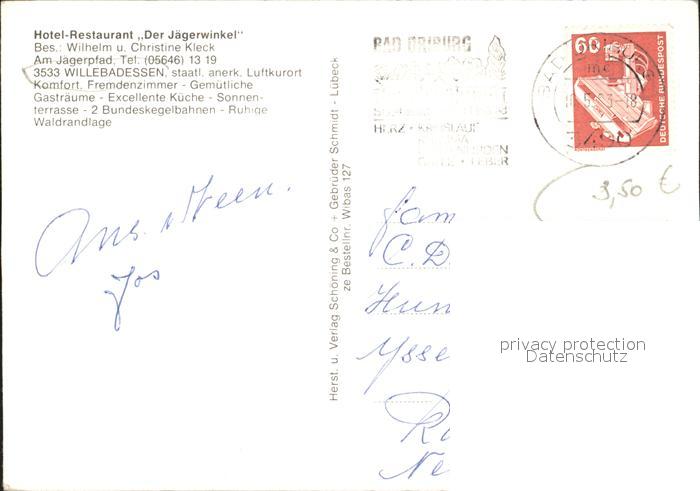 Hotel-Restaurant „Der Jägerwinkel"
Bes.: Wilhelm u. Christine Kleck
Am Jägerpfad, Tel: (05646) 13 19
3533 WILLEBADESSEN, staatl. anerk. Luftkurort
Komfort. Fremdenzimmer - Gemütliche
Gasträume - Excellente Küche - Sonnen-
terrasse - 2 Bundeskegelbahnen - Ruhige
Waldrandlage
Herst. u. Verlag Schöning & Co + Gebrüder Schmidt - Lübeck
ze Bestellnr. Wibas 127
BAD DRIBURG
HERZ • KREISLAUF
LEBER
60
DEUTSCHE BUNDESPOST
3,50 €
Jos
fam
C. D
Ysse
Ne
privacy protection
Datenschutz